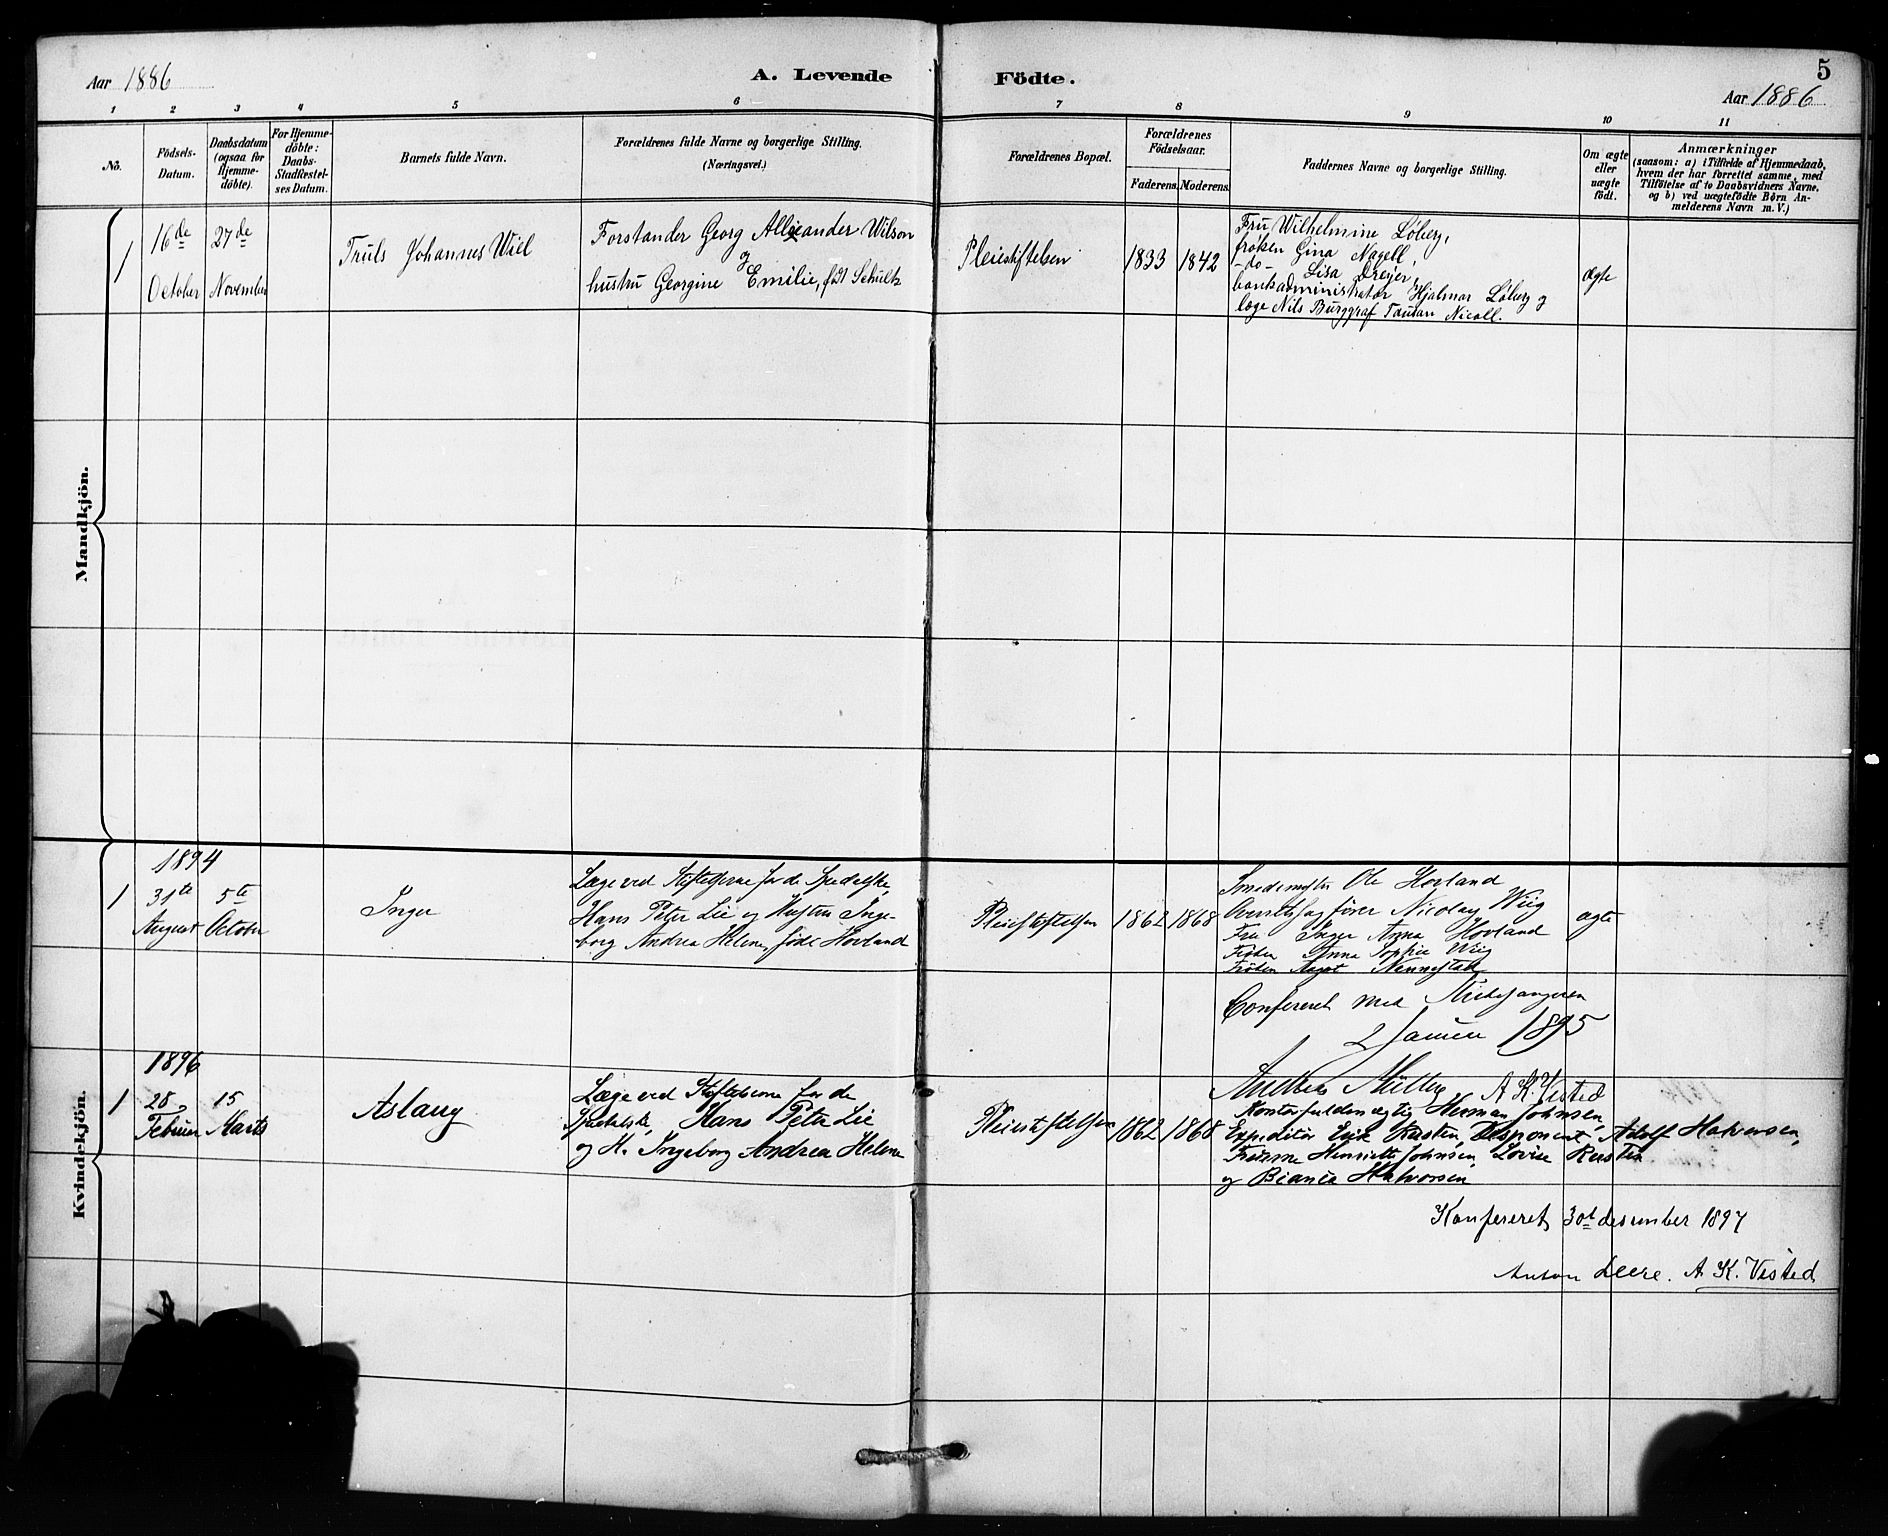 Aar 1886
A. Levende Födte.
5
Aar 1886
1 2 3 4 5 6 7 8 9 10 11
No.
Födsels-
Datum.
Daabsdatum
(ogsaa for
Hjemme-
døbte).
For Hjemme-
døbte:
Daabs-
Stadfæstel-
ses Datum.
Barnets fulde Navn.
Forældrenes fulde Navne og borgerlige Stilling.
(Næringsvei.)
Forældrenes Bopæl.
Forældrenes
Födselsaar.
Faderens. Moderens.
Faddernes Navne og borgerlige Stilling.
Om ægte
eller
uægte
födt.
Anmærkninger
(saasom: a) i Tilfælde af Hjemmedaab,
hvem der har forrettet samme, med
Tilföielse af to Daabsvidners Navne,
og b) ved uægtefödte Börn An-
melderens Navn m. V.)
Mandkjön.
1
16de
October
27de
November
Truls Johannes Wiel
Forstander Georg Allexander Wilson
og
hustru Georgine Emilie, født Schultz
Pleiestiftelsen
1833
1842
Fru Wilhelmine Løberg,
frøken Gina Nagell,
-do- Lisa Dreyer,
bankadministrator Hjalmar Løberg og
læge Nils Burggraf Tausan Nicoll.
ægte
Kvindekjön.
1894
1
31te
August
5te
October
Inger
Læge ved Stiftelserne for de Spedalske,
Hans Peter Lie og Hustru Inge-
borg Andrea Helene, føde Hovland
Pleiestiftelsen
1862
1868
Smedemester Ole Hovland
Overretssagfører Nicolay Wiig
Fru Inger Anna Hovland
Frøken Anna Sophie Wiig
Frøken Aagot
ægte
Confereret med
2 Januar 1895
A. K. Visted
1896
1
28
Februar
15
Marts
Aslaug
Læge ved Stiftelserne for de
Spedalske, Hans Peter Lie
og H. Ingeborg Andrea Helene
Pleiestiftelsen
1862
1868
Kontorfuldmægtig Herman Johnsen,
Expeditør Erik Rusten, Disponent Adolf Halvorsen,
Frøkerne Henriette Johnsen, Lovise Rusten
og Bianca Halvorsen
Konfereret 30te desember 1897
A. K. Visted